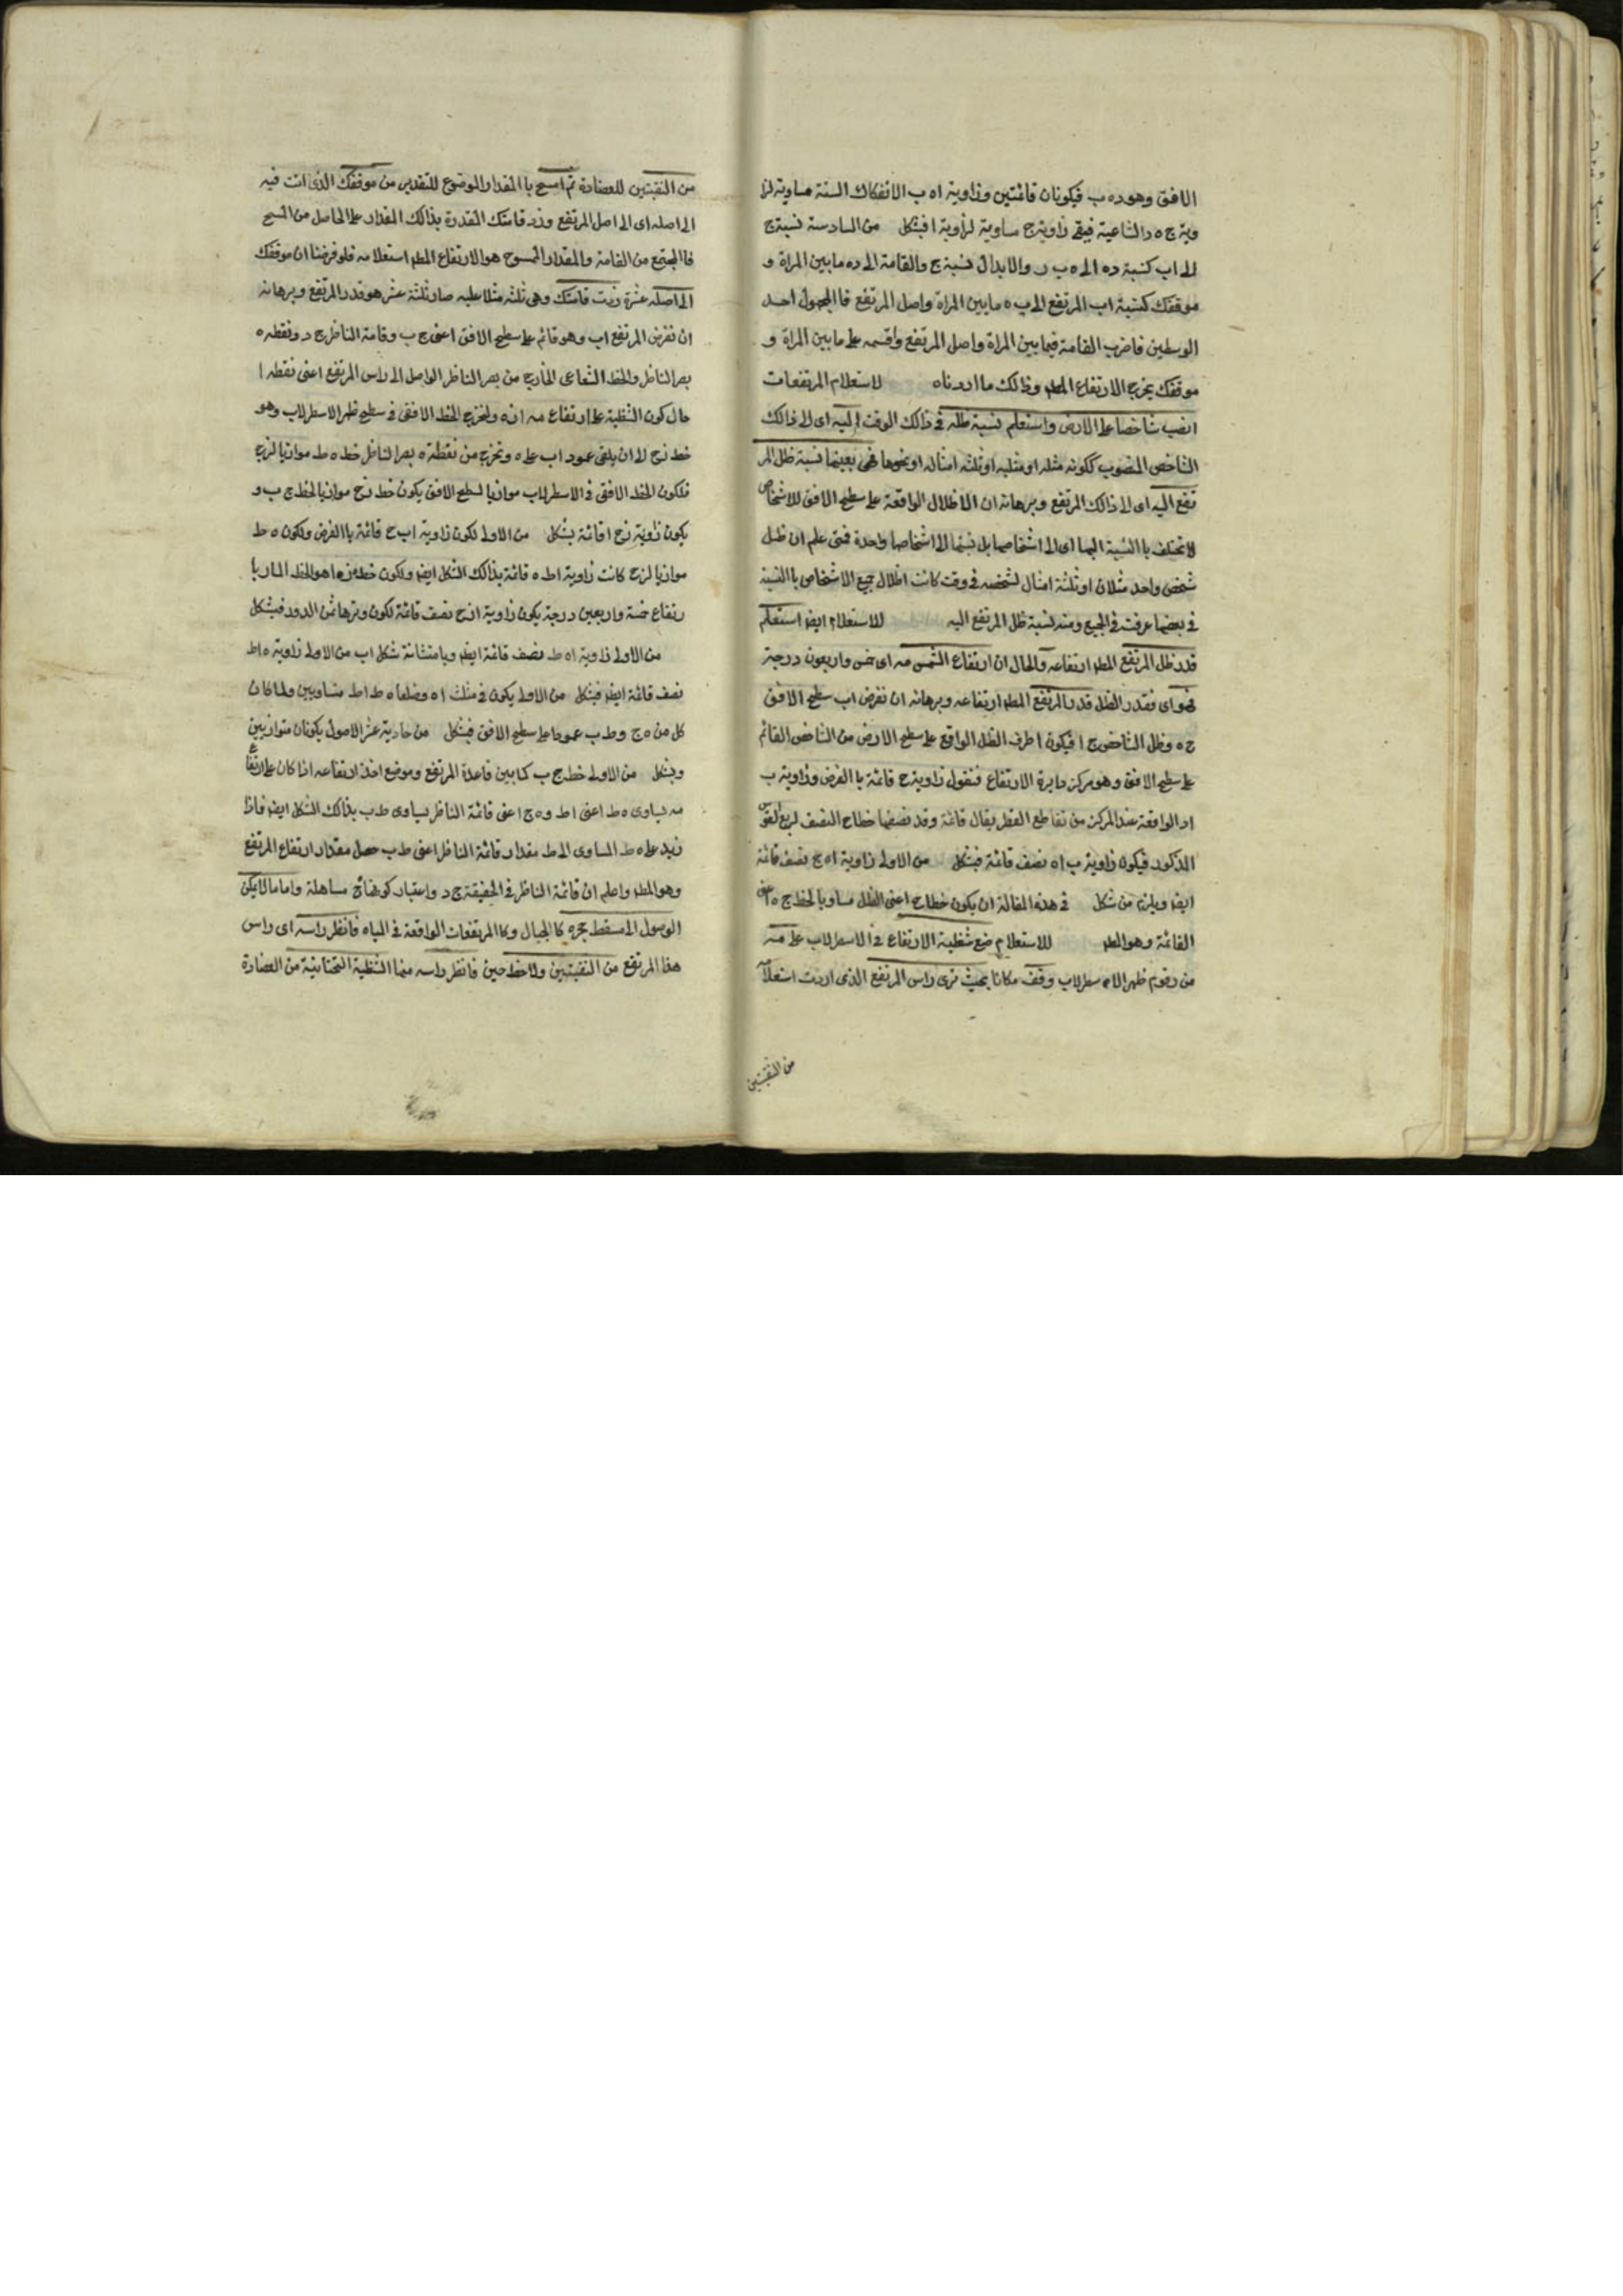 الافق وهو ده ب فيكونان قائمتين وزاوية اه ب الانفكاك السنة مساوية لزا
وية ج ه د الشاعية فيبقى زاوية ج مساوية لزاوية ا فبشكل من السادسة نسبة ج
الى اب كنسبة ده الى ه ب ر والابدال نسبة ج والقامة الى ده مابين المراة و
موقفك كنسبة اب المرتفع الى ب ه مابين المراة واصل المرتفع فاالمجهول احد
الوسطين فاضرب القامة فيما بين المراة واصل المرتفع واقسمه على مابين المراة و
موقفك يخرج الارتفاع المطم وذالك ما اردناه لاستعلام المرتفعات
انصب شاخصا على الارض واستعلم نسبة ظله في ذالك الوقت اليه اى الى ذالك
الشاخص المنصوب ككونه مثله او مثليه او ثلثه امثاله او نحوها فهى بعينها نسبة ظل المر
تفع اليه اى الى ذالك المرتفع وبرهانه ان الاظلال الواقعة على سطح الافق للاشخاص
لا تختلف باالنسبة اليها اى الى اشخاصها بل نسبتها الى اشخاصها واحدة فمتى علم ان ظل
شخص واحد مثلان او ثلثة امثال لشخصه في وقت كانت اظلال جميع الاشخاص باالنسبة
فى بعضها عرفت في الجميع ومنه نسبة ظل المرتفع اليه للاستعلام ايضا استعلم
قدر ظل المرتفع المطم ارتفاعه والحال ان ارتفاع الشمس مه اى خمس واربعون درجة
فهو اى فقدر الظل قدر المرتفع المطم ارتفاعه وبرهانه ان نفرض اب سطح الافق
ج ه وظل الشاخص ج ا فيكون ا طرف الظل الواقع على سطح الارض من الشاخص القائم
على سطح الافق وهو مركز دايرة الارتفاع فنقول زاوية ج قائمة باالفرض وزاوية ب
اد الواقعة عند المركز من تقاطع القطر يقال قائمة وقد نصفها خط اح النصف لربع القوس
المذكور فيكون زاوية ب اه نصف قائمة فبشكل من الاولى زاوية اه ج نصف قائمة
ايضا ويلزم من شكل في هذه المقالة ان يكون خط اح اعنى الظل مساويا لخط ج ه اعنى
القائمة وهو المطم للاستعلام ضع شظية الارتفاع فى الاسطرلاب على مه
من رقوم ظهر الاسطرلاب وقف مكانا بحيث ترى راس المرتفع الذى اردت استعلامه
من الثقبتين
من الثقبتين للعضادة ثم امسح باالمقدار الموضوع للتقدير من موقفك الذى انت فيه
الى اصله اى الى اصل المرتفع وزد قامتك المقدرة بذالك المقدار على الحاصل من المسح
فاالمجتمع من القامة والمقدار الممسوح هو الارتفاع المطم استعلامه فلو فرضنا ان موقفك
الى اصله عشرة زدت قامتك وهى ثلثه مثلا عليه صار ثلثة عشر هو قدر المرتفع وبرهانه
ان نفرض المرتفع اب وهو قائم على سطح الافق اعنى ج ب وقامة الناظر ج د ونقطه ه
بصر الناظر والخط الشعاعى الخارج من بصر الناظر الواصل الى راس المرتفع اعنى نقطه ا
حال كون الشظية على ارتفاع مه ازه ولنخرج الخط الافقى في سطح ظهر الاسطرلاب وهو
خط زح الى ان يلقى عمود اب على ه ونخرج من نقطة ه بصر الناظر خط ه ط موازيا لزح
فلكون الخط الافقى فى الاسطرلاب موازيا لسطح الافق يكون خط زح موازيا لخط ج ب و
يكون زاوية زح ا قائمة بشكل من الاولى لكون زاوية اب ج قائمة باالفرض ولكون ه ط
موازيا لزح كانت زاوية اط ه قائمة بذالك الشكل ايضا ولكون خط ه ز ا هو الخط المار با
رتفاع خمسة واربعين درجة يكون زاوية ازح نصف قائمة لكون وترها ثمن الدور فبشكل
من الاولى زاوية اه ط نصف قائمة ايضا وبامتثانة شكل اب من الاولى زاوية ه اط
نصف قائمة ايضا فبشكل من الاولى يكون في مثلث اه وضلعا ه ط اط متساويين ولما كان
كل من ه ج وط ب عمودا على سطح الافق فبشكل من حادية عشر الاصول يكونان متوازيين
وبشكل من الاولى خط ج ب كما بين قاعدة المرتفع وموضع اخذ ارتفاعه اذا كان على ارتفاع
مه يساوى ه ط اعنى اط وه ج اعنى قائمة الناظر يساوى ط ب بذالك الشكل ايضا فاذا
زيد على ه ط المساوى الى ط مقدار قائمة الناظر اعنى ط ب حصل مقدار ارتفاع المرتفع
وهو المطم واعلم ان قائمة الناظر في الحقيقة ج د واعتبار كونها ه ج مساهلة واما مالا يمكن
الوصول الى مسقط حجره كالجبال وكالمرتفعات الواقعة في المياه فانظر راسه اى راس
هذا المرتفع من الثقبتين ولاحظ حين فانظر راسه منها الشظية التحتانية من العضادة